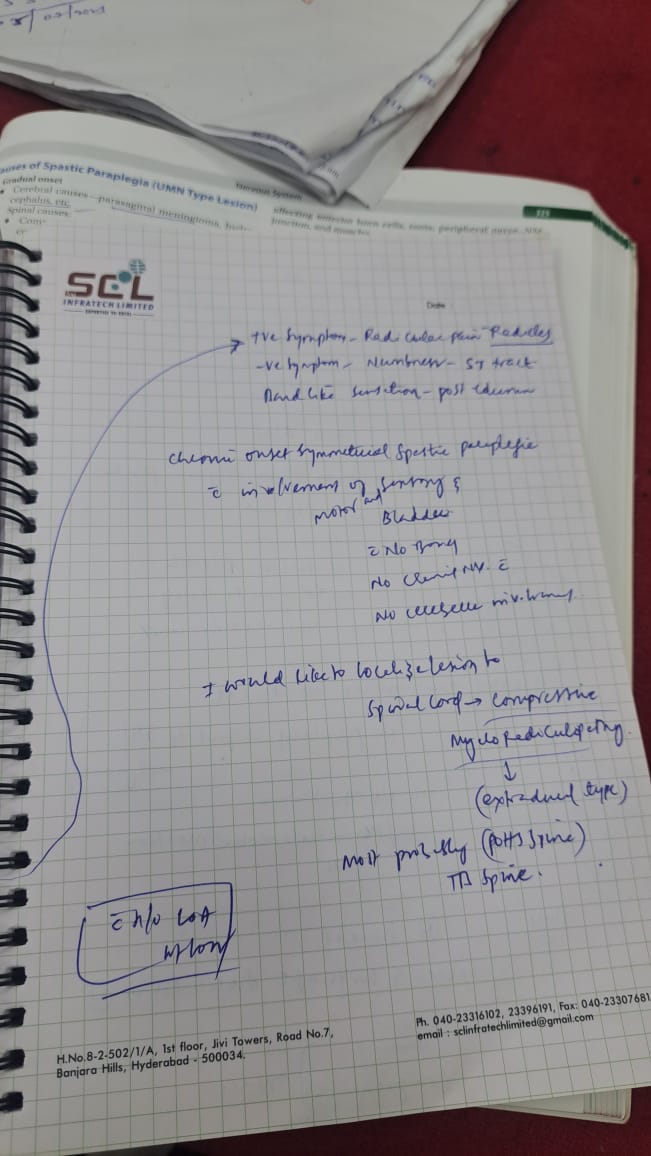 auses of Spastic Paraplegia (UMN Type Lesion)
Gradual onset
• Cerebral causes—parasagittal meningioma, hydro-
cephalus, etc.
Spinal causes:
• Com
Nervous System
affecting anterior horn cells, roots, peripheral nerve, NM
junction, and muscles.
SCL
INFRATECH LIMITED
Date
+ve Symptom - Radicular pain - Radicles
-ve Symptom - Numbness - ST tract
Band like sensation - post column
chronic onset symmetrical spastic paraplegia
c̄ involvement of sensory &
motor and
Bladder
c̄ No Bony
No cranial NV. c̄
No cerebellar
I would like to localize lesion to
Spinal cord → compressive
Myelo Radiculopathy.
↓
(extradural type)
Most probably (POTTS Spine)
TB Spine.
c̄ h/o LOA
H.No.8-2-502/1/A, 1st floor, Jivi Towers, Road No.7,
Banjara Hills, Hyderabad - 500034.
Ph. 040-23316102, 23396191, Fax: 040-23307681
email : sclinfratechlimited@gmail.com